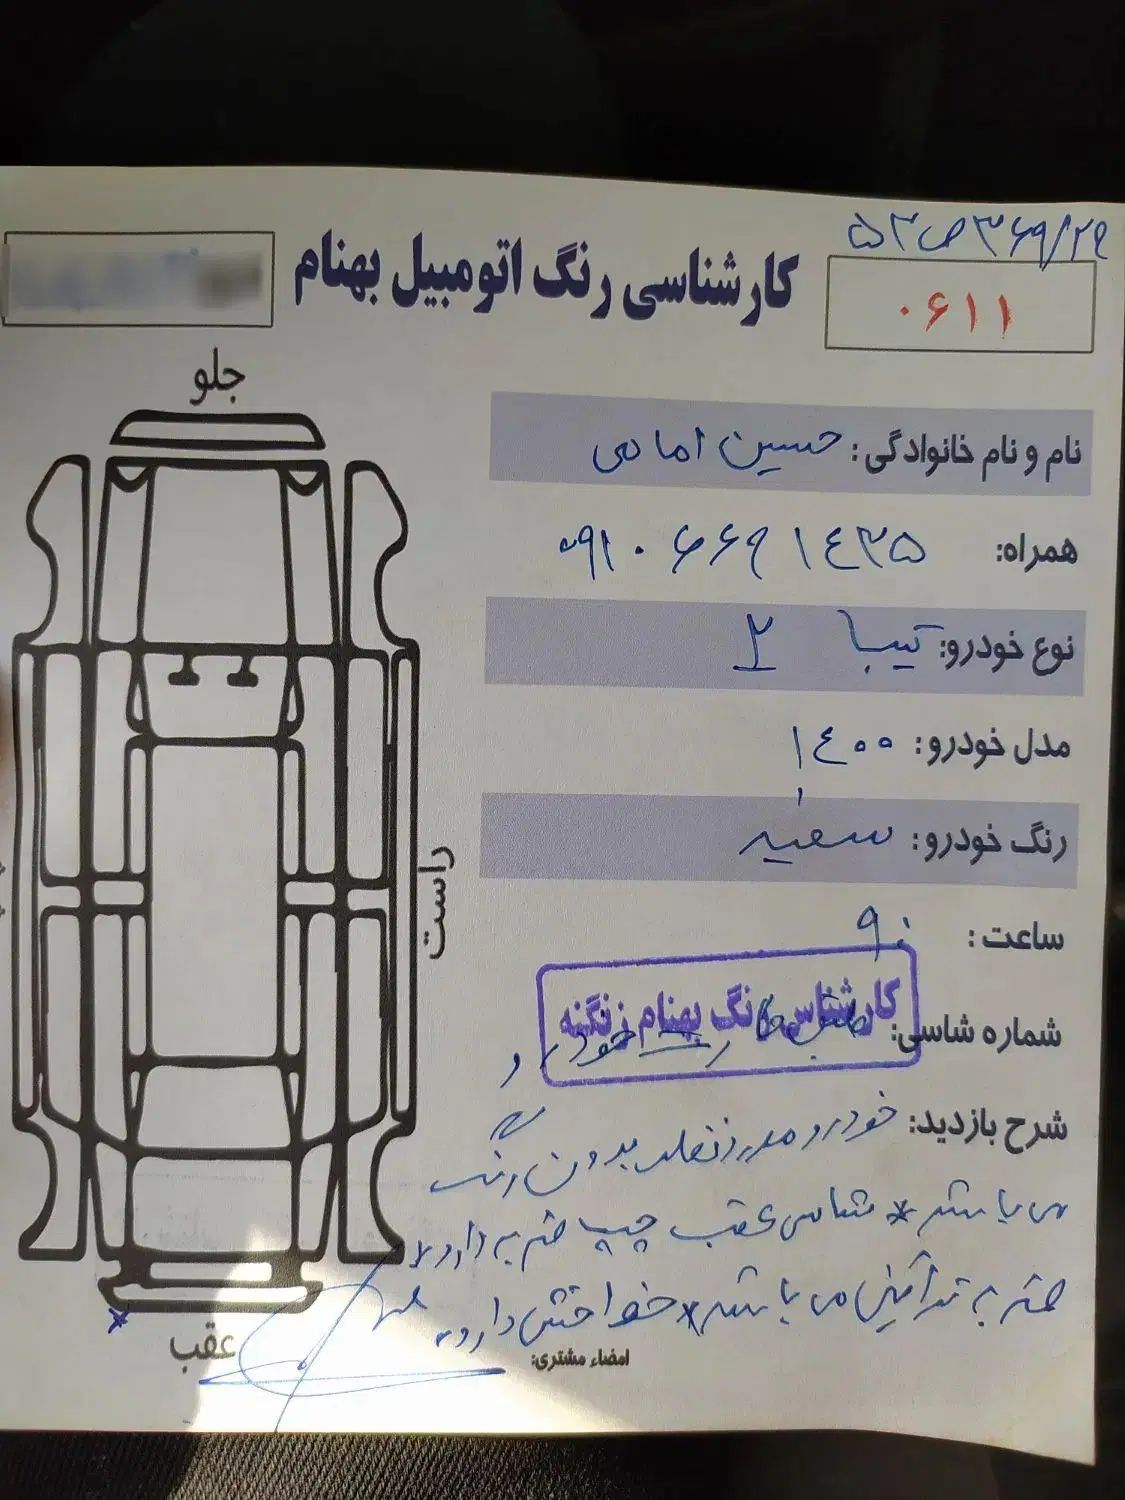 ۵۳ص۳۶۹/۲۹
کارشناسی رنگ اتومبیل بهنام
۰۶۱۱
جلو
نام و نام خانوادگی: حسین امامی
همراه: ۰۹۱۰۶۶۹۱۴۳۵
نوع خودرو: تیبا ۲
مدل خودرو: ۱۴۰۰
رنگ خودرو: سفید
راست
ساعت: ۹
کارشناس رنگ بهنام زنگنه
شماره شاسی: خودرو
شرح بازدید: خودرو مورد نظر بدون رنگ
می باشد * شاسی عقب چپ ضربه دارد
ضربه می باشد * خط و خش دارد
عقب
امضاء مشتری: